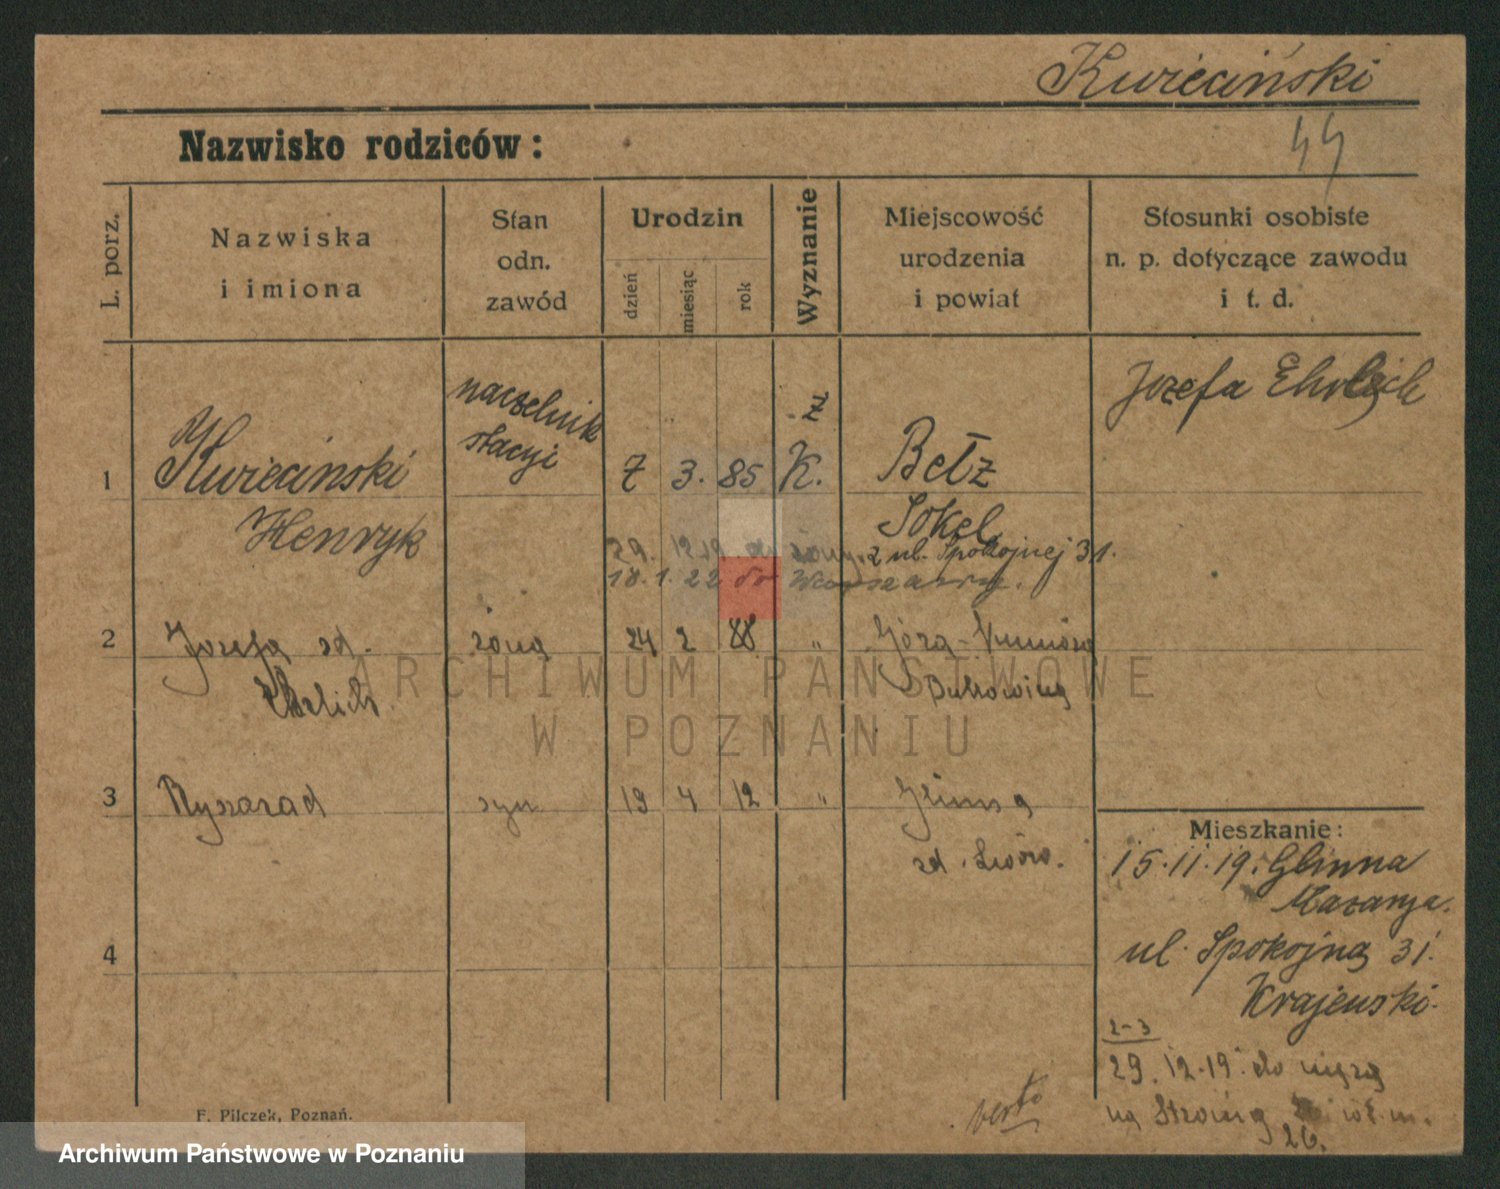 Kwieciński
44
Nazwisko rodziców :
L. porz.
Nazwiska
i imiona
Stan
odn.
zawód
Urodzin
dzień
miesiąc
rok
Wyznanie
Miejscowość
urodzenia
i powiat
Stosunki osobiste
n. p. dotyczące zawodu
i t. d.
1
Kwieciński
Henryk
naczelnik
stacyi
7 3. 85
rz
K.
Bełz
Sokal
Józefa Ehrlich
29. 12.19 do żony. 2 ul. Spokojnej 31.
18.1.22 do Warszawy.
2
Józefa zd.
Ehrlich.
żona
24 2 88
"
Góra-
Bukowina
3
Ryszard
syn
19 4 12
"
Glinna
ad. Lwów.
4
Mieszkanie:
15.11.19. Glinna
ul. Spokojna 31.
Krajewski.
2-3
29.12.19. do męża
na 
26.
verte
F. Pilczek, Poznań.
ARCHIWUM PAŃSTWOWE
W POZNANIU
Archiwum Państwowe w Poznaniu